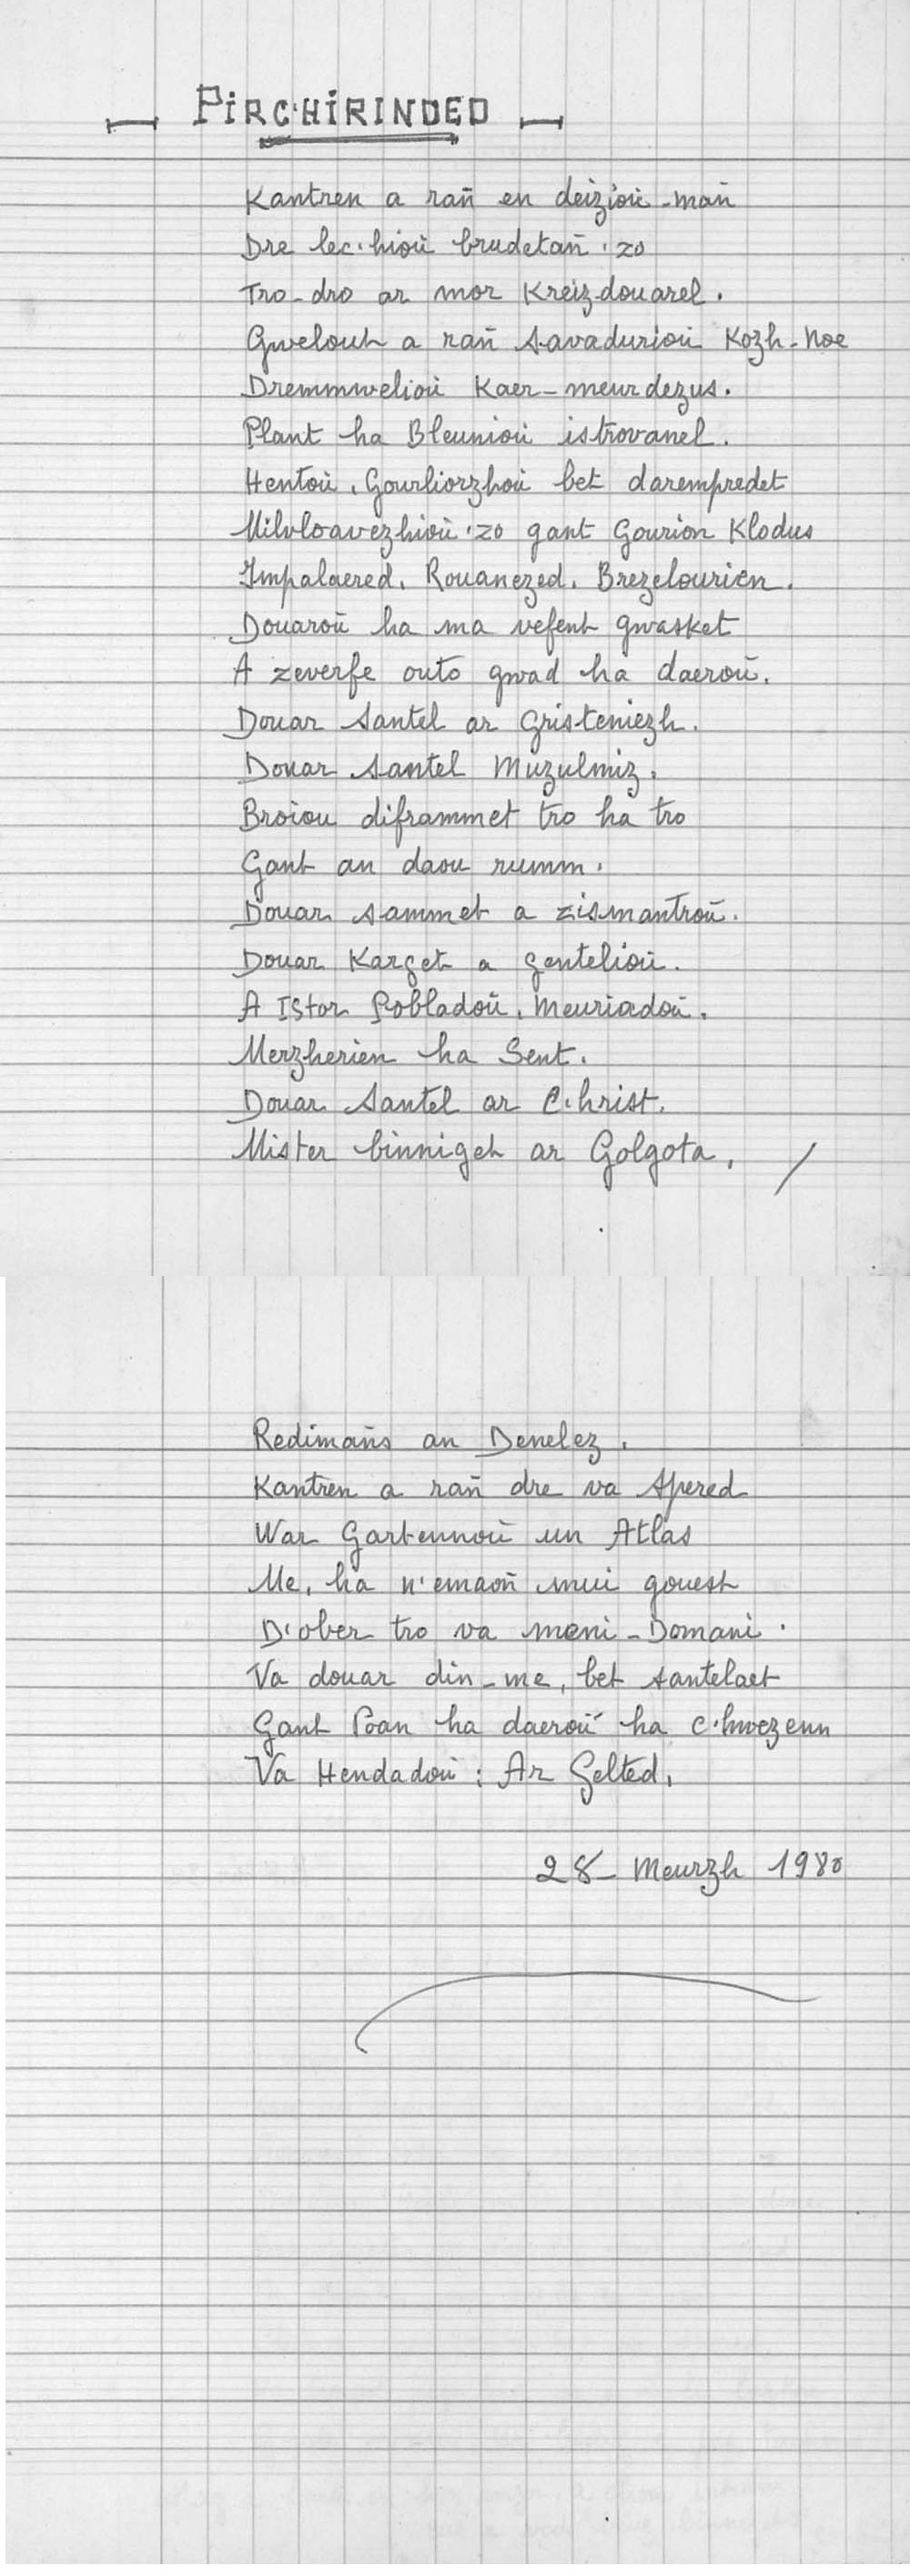 PiRC'HIRINDED
Kantren a rañ en deizioù-mañ
Dre lec'hioù brudetañ 'zo
Tro-dro ar mor Kreiz-douarel.
Gwelout a rañ savadurioù Kozh-Noe
Dremmwelioù Kaer-meurdezus.
Plant ha Bleunioù istrovanel.
Hentoù, Gourliorzhoù bet darempredet
Milvloavezhioù 'zo gant Gourion Klodus
Impalaered, Rouanezed, Brezelourien.
Douaroù ha ma vefent gwasket
A zeverfe outo gwad ha daeroù.
Douar Santel ar Gristeniezh.
Douar Santel Muzulmiz.
Broiou diframmet tro ha tro
Gant an daou rumm.
Douar sammet a zismantroù.
Douar Karget a gentelioù.
A Istor Pobladoù, Meuriadoù.
Merzherien ha Sent.
Douar Santel ar C'hrist.
Mister binniget ar Golgota, /
Redimañs an Denelez.
Kantren a rañ dre va Spered
War Gartennoù un Atlas
Me, ha n'emaoñ mui gouest
D'ober tro va mani-Domani.
Va douar din-me, bet santelaet
Gant Poan ha daeroù ha c'hwezenn
Va Hendadoù : Ar Gelted,
28- Meurzh 1980